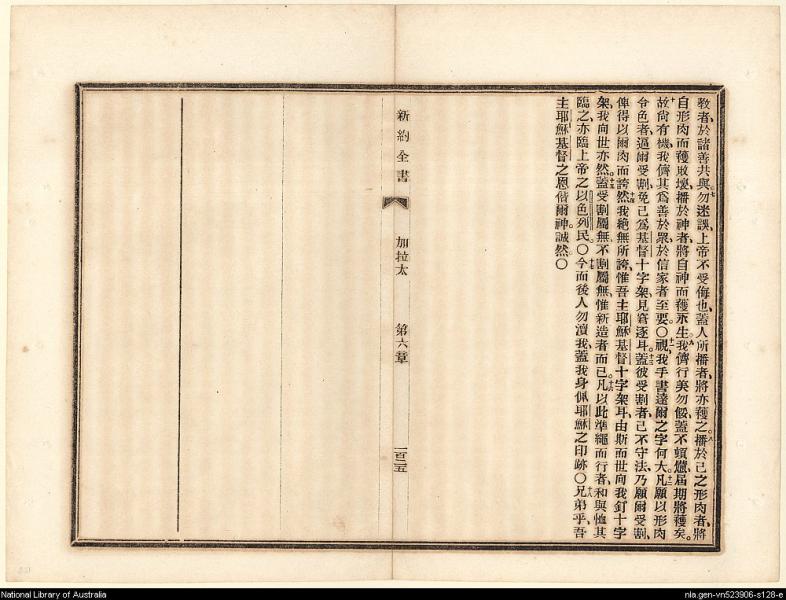 教者於諸善共與勿迷誤上帝不受侮也蓋人所播者將亦穫之播於己之形肉者將
自形肉而穫敗壞播於神者將自神而穫永生我儕行美勿餒蓋不頹爦屆期將穫矣
故尚有機我儕其為善於眾於信家者至要〇視我手書達爾之字何大凡願以形肉
令色者逼爾受割免己為基督十字架見窘逐耳蓋彼受割者己不守法乃願爾受割
俾得以爾肉而誇然我絕無所誇惟吾主耶穌基督十字架耳由斯而世向我釘十字
架我向世亦然蓋受割屬無不割屬無惟新造者而已凡以此準繩而行者和與恤其
臨之亦臨上帝之以色列民〇今而後人勿瀆我蓋我身佩耶穌之印跡〇兄弟乎吾
主耶穌基督之恩偕爾神誠然〇
新約全書
加拉太
第六章
一百二五
National Library of Australia
nla.gen-vn523906-s128-e